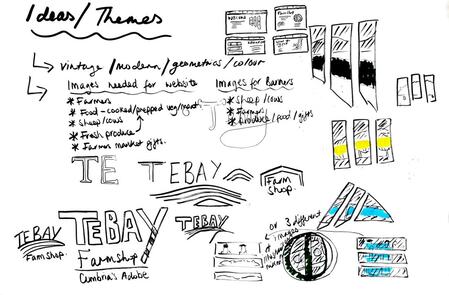 Ideas/Themes
vintage/modern/geometrics/colour
Images needed for website
* Farmers
* Food - cooked/prepped veg/meat
* Sheep/cows
* Fresh produce
* Farmer market gifts.
Images for Banners
* Sheep/cows
* Farmers
* Produce/food/gifts
TE
TEBAY
Farm
Shop.
TEBAY
Farmshop.
TEBAY
Farmshop
Cumbria's Adobe
TEBAY
or 3 different
images